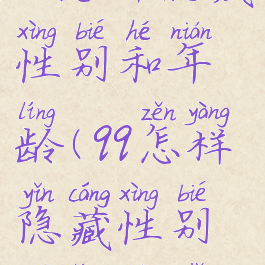 xìng bié hé nián
性别和年
líng zěn yàng
龄(99怎样
yǐn cáng xìng bié
隐藏性别